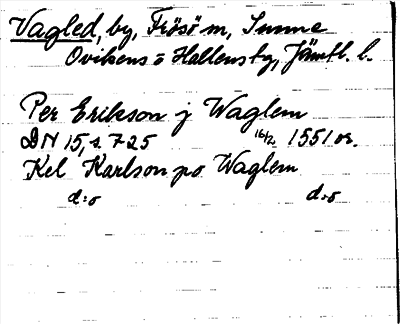 Vagled, by, Frösö sn, Sunne
Ovikens o Hallens tg, Jämtl. l.
Per Erikson j Waglem
DN 15, s. 725 16/2 1551 or.
Kel Karlson po Waglem
d:o d:o